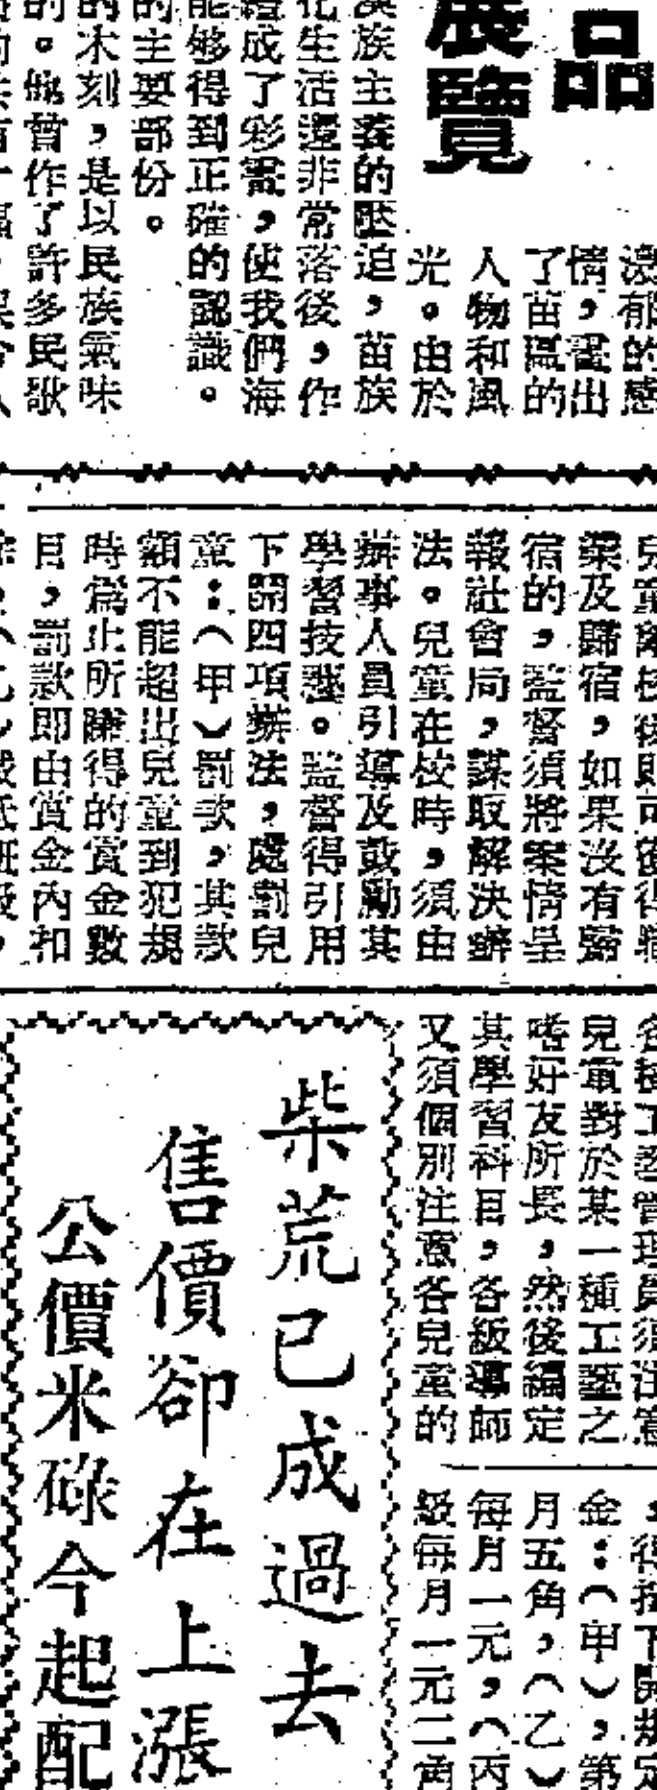 品
展覽
濃郁的感
情，畫出
了苗區的
人物和風
光。由於
族主義的壓迫，苗族
化生活還非常落後，作
繪成了彩畫，使我們海
能够得到正確的認識。
的主要部份。
的木刻，是以民族氣味
的。他曾作了許多民歌
兒童離校後則可獲得職
業及歸宿，如果沒有歸
宿的，監督須將案情呈
報社會局，謀取解決辦
法。兒童在校時，須由
辦事人員引導及鼓勵其
學習技藝。監督得引用
下開四項辦法，處罰兒
童：（甲）罰款，其款
額不能超出兒童到犯規
時爲止所賺得的賞金數
目，罰款即由賞金內扣
各校工藝管理員須注意
兒童對於某一種工藝之
嗜好及所長，然後編定
其學習科目，各級導師
又須個別注意各兒童的
，得按下開規定
金：（甲），第
月五角，（乙）
每月一元，（丙
級每月一元二角
柴荒已成過去
售價卻在上漲
公價米碌今起配